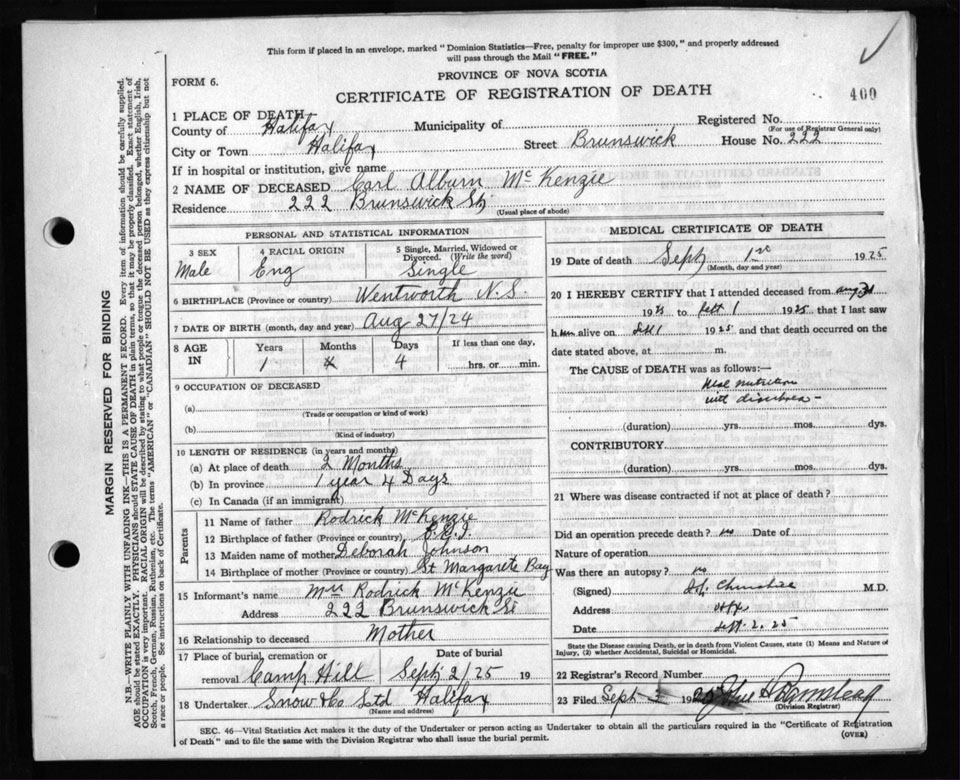 This form if placed in an envelope, marked "Dominion Statistics—Free, penalty for improper use $300," and properly addressed
will pass through the Mail "FREE."
FORM 6.
PROVINCE OF NOVA SCOTIA
CERTIFICATE OF REGISTRATION OF DEATH
400
1 PLACE OF DEATH
County of Halifax Municipality of Registered No.
(For use of Registrar General only)
City or Town Halifax Street Brunswick House No. 222
If in hospital or institution, give name
2 NAME OF DECEASED Carl Alburn Mc Kenzie
Residence 222 Brunswick St
(Usual place of abode)
PERSONAL AND STATISTICAL INFORMATION
3 SEX
Male
4 RACIAL ORIGIN
Eng
5 Single, Married, Widowed or
Divorced. (Write the word)
Single
6 BIRTHPLACE (Province or country) Wentworth N.S.
7 DATE OF BIRTH (month, day and year) Aug 27/24
8 AGE
IN
Years Months Days If less than one day,
1 4 hrs. or min.
9 OCCUPATION OF DECEASED
(a)
(Trade or occupation or kind of work)
(b)
(Kind of industry)
10 LENGTH OF RESIDENCE (in years and months)
(a) At place of death 2 Months
(b) In province 1 year 4 Days
(c) In Canada (if an immigrant)
Parents
11 Name of father Rodrick McKenzie
12 Birthplace of father (Province or country) P.E.I.
13 Maiden name of mother Deborah Johnson
14 Birthplace of mother (Province or country) St Margarets Bay
15 Informant's name Mrs Rodrick McKenzie
Address 222 Brunswick St
16 Relationship to deceased Mother
17 Place of burial, cremation or
removal Camp Hill
Date of burial
Sept 2/25 19
18 Undertaker Snow & Co Ltd Halifax
(Name and address)
MEDICAL CERTIFICATE OF DEATH
19 Date of death Sept 1st 1925
(Month, day and year)
20 I HEREBY CERTIFY that I attended deceased from Aug 31
1925 to Sept 1 1925 that I last saw
him alive on Sept 1 1925 and that death occurred on the
date stated above, at m.
The CAUSE of DEATH was as follows:—
Mal nutrition
with diarrhoea -
(duration) yrs. mos. dys.
CONTRIBUTORY
(duration) yrs. mos. dys.
21 Where was disease contracted if not at place of death?
Did an operation precede death? no Date of
Nature of operation
Was there an autopsy? no
(Signed) M.D.
Address Hfx
Date Sept. 2. 25
State the Disease causing Death, or in death from Violent Causes, state (1) Means and Nature of
Injury, (2) whether Accidental, Suicidal or Homicidal.
22 Registrar's Record Number
23 Filed Sept 3 1925
(Division Registrar)
SEC. 46—Vital Statistics Act makes it the duty of the Undertaker or person acting as Undertaker to obtain all the particulars required in the "Certificate of Registration
of Death" and to file the same with the Division Registrar who shall issue the burial permit.
(OVER)
MARGIN RESERVED FOR BINDING
N.B.—WRITE PLAINLY WITH UNFADING INK—THIS IS A PERMANENT RECORD. Every item of information should be carefully supplied.
AGE should be stated EXACTLY. PHYSICIANS should STATE CAUSE OF DEATH in plain terms, so that it may be properly classified. Exact statement of
OCCUPATION is very important. RACIAL ORIGIN will be described by stating to what people or tongue the deceased person belonged, whether English, Irish,
Scotch, French, German, Russian, Ruthenian, etc. The terms "AMERICAN" or "CANADIAN" SHOULD NOT BE USED as they express citizenship but not
a race or people. See instructions on back of Certificate.